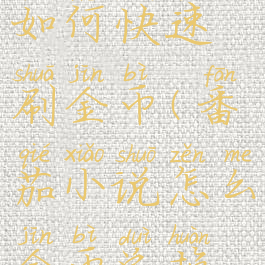 如何快速
shuā jīn bì fān
刷金币(番
qié xiǎo shuō zěn me
茄小说怎么
jīn bì duì huàn